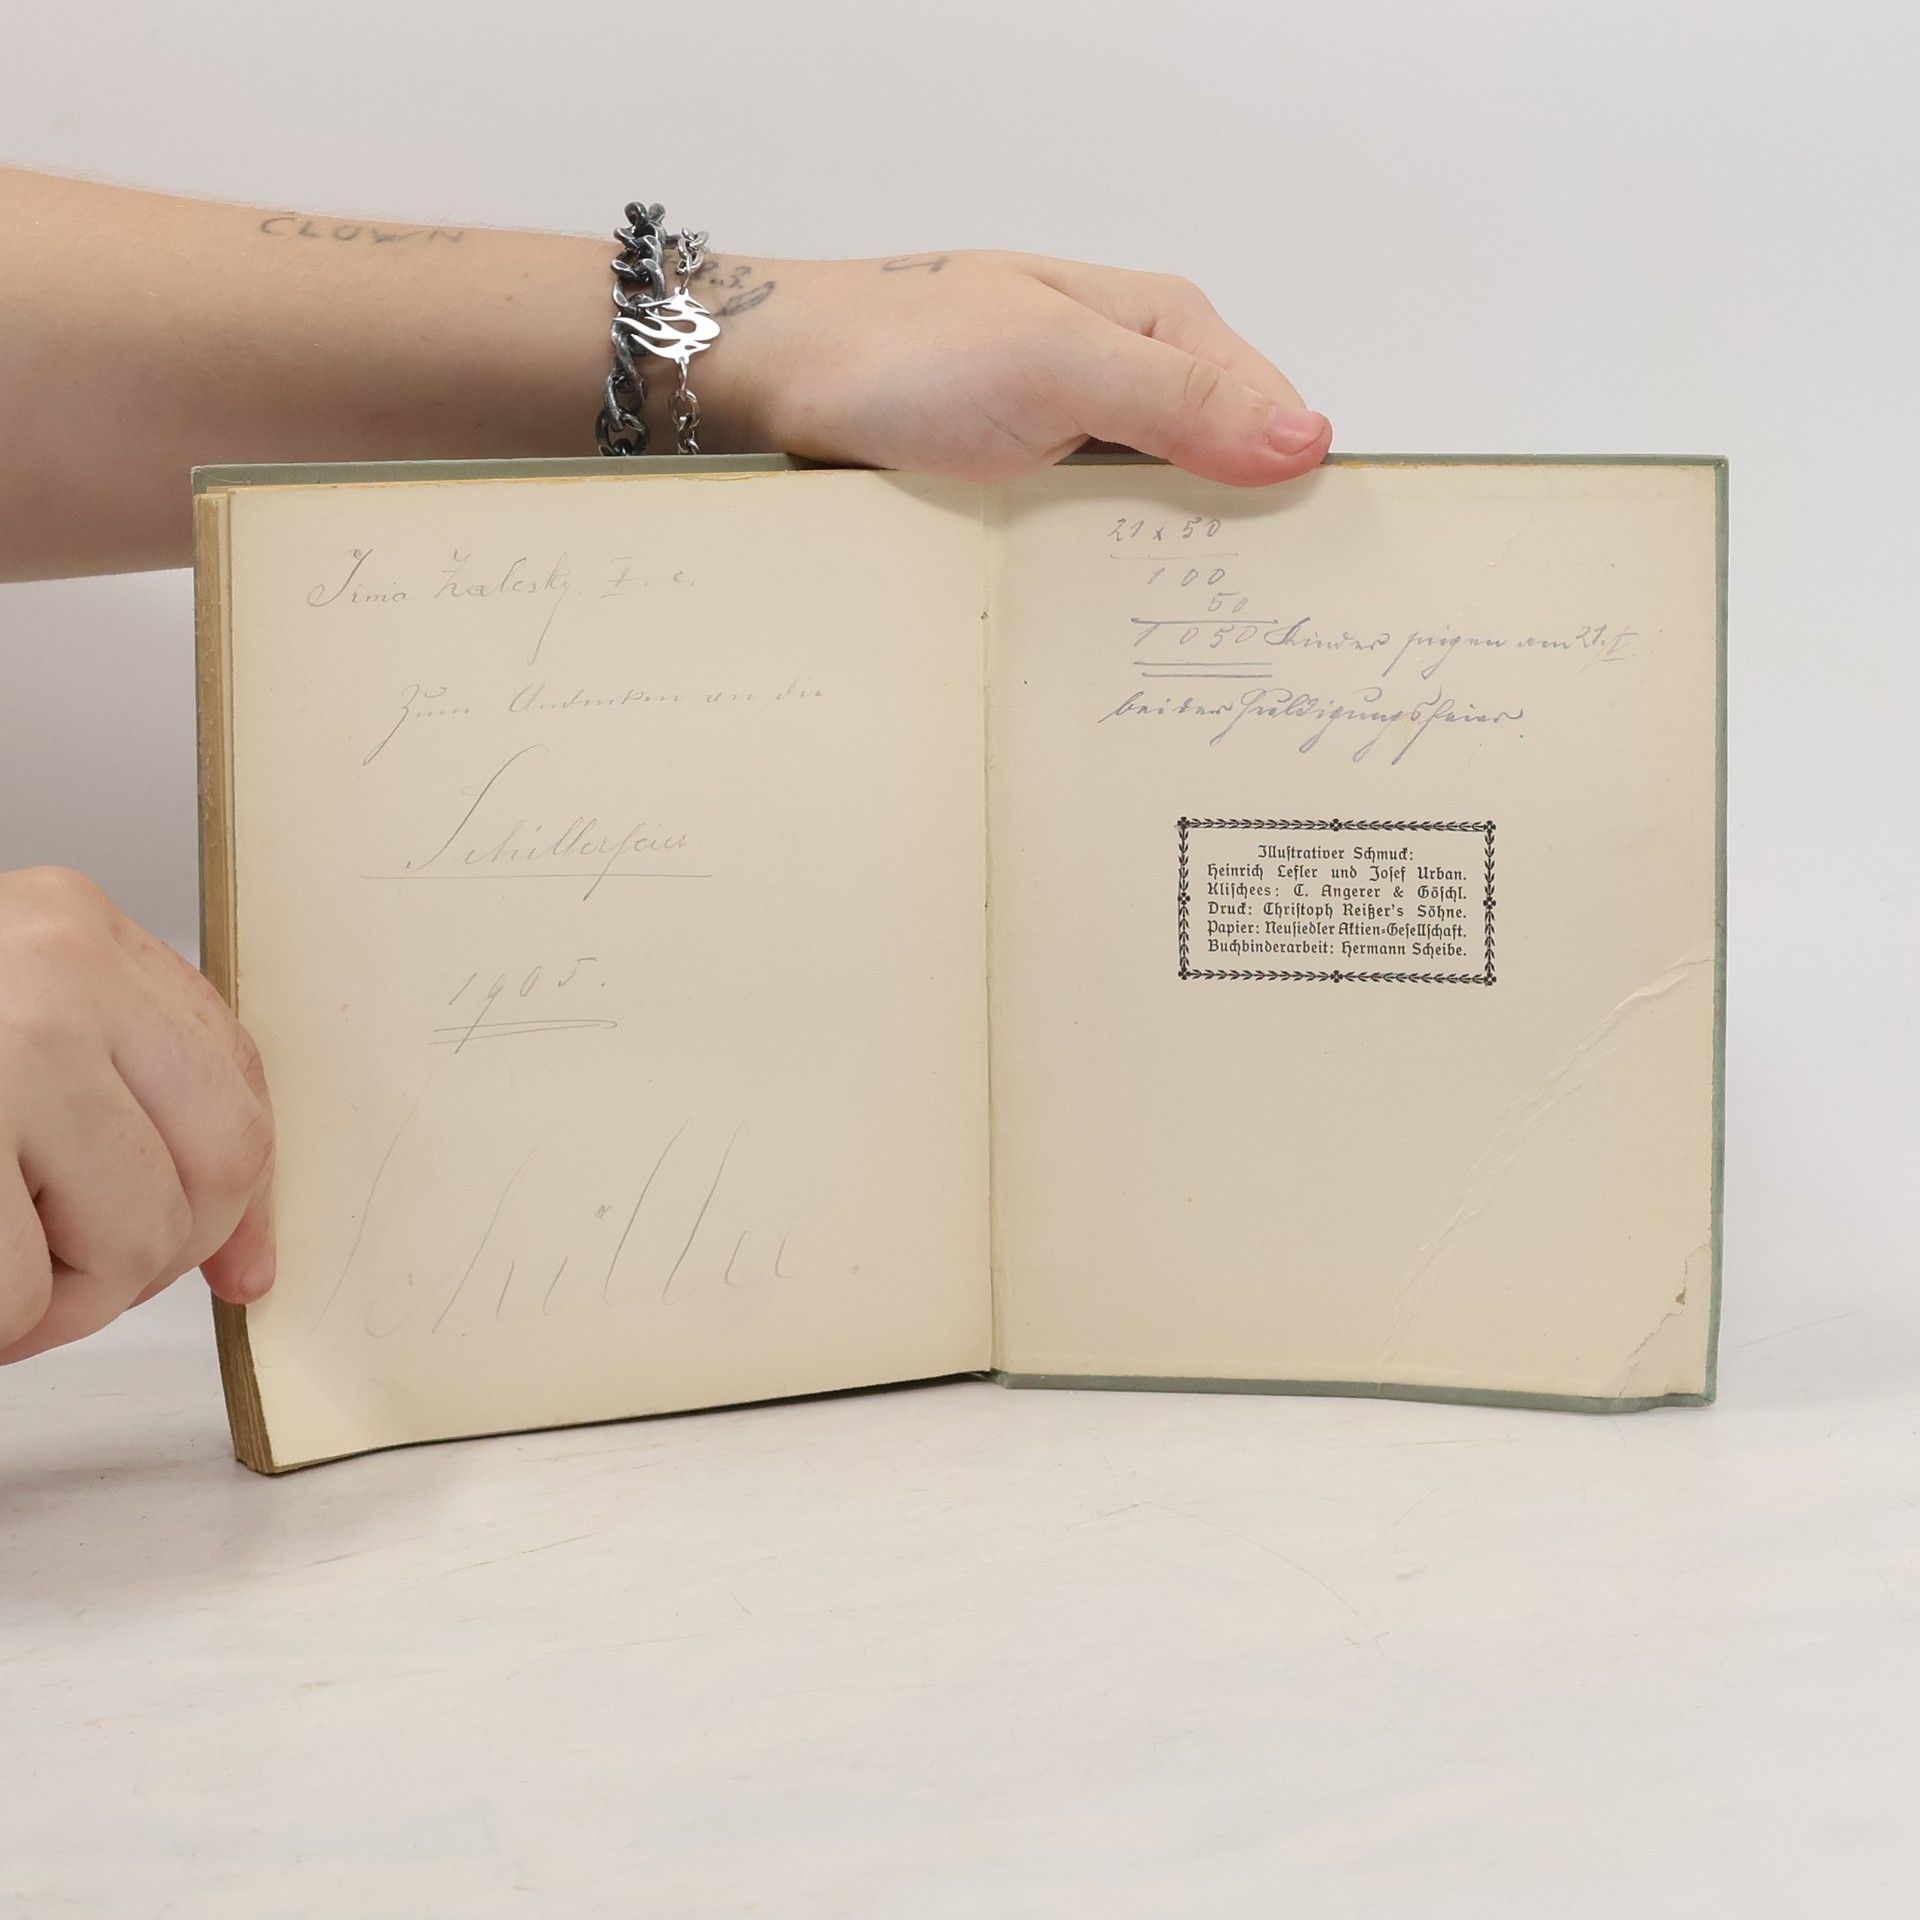 CLOWN
Irma Zalesky. V. c.
Zum Andenken an die
Schillerfeier
1905.
Schiller.
21 x 50
100
50
1050 Kinder singen am 21./V.
bei der Huldigungsfeier.
Illustrativer Schmuck:
Heinrich Lefler und Josef Urban.
Klischees: C. Angerer & Göschl.
Druck: Christoph Reißer's Söhne.
Papier: Neusiedler Aktien-Gesellschaft.
Buchbinderarbeit: Hermann Scheibe.